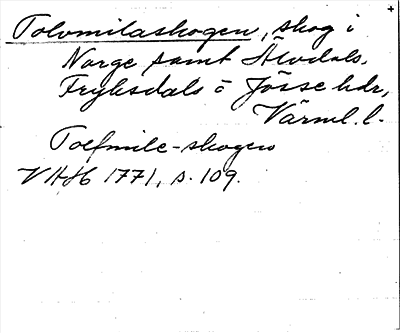 Tolvmilaskogen, skog i
Norge samt Älvdals,
Fryksdals o Jösse hdr,
Värml. l.
Tolfmile-skogen
VAH 1771, s. 109.